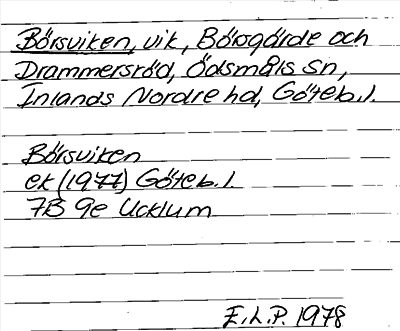 Börsviken, vik, Börsgärde och
Drammersröd, Ödsmåls sn,
Inlands Nordre hd, Göteb.l.
Börsviken
ek (1977) Göteb.l.
7B 9e Ucklum
E.L.P. 1978